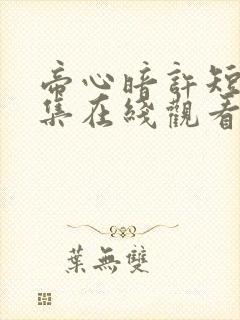 帝心暗許短
集在綫觀看
葉無雙